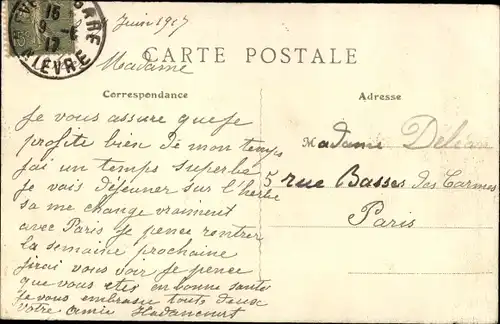 Juin 1917
GARE
16
9 -6
17
NIEVRE
CARTE POSTALE
Madame
Correspondance
Adresse
Je vous assure que je
profite bien de mon temps
jai un temps superbe
je vais déjeuner sur l'herbe
sa me change vraiment
avec Paris je pence rentrer
la semaine prochaine
jirai vous voir je pence
que vous etes en bonne santé
Je vous embrasse touts deux
votre amie
Madame
5 rue Basses des Carmes
Paris